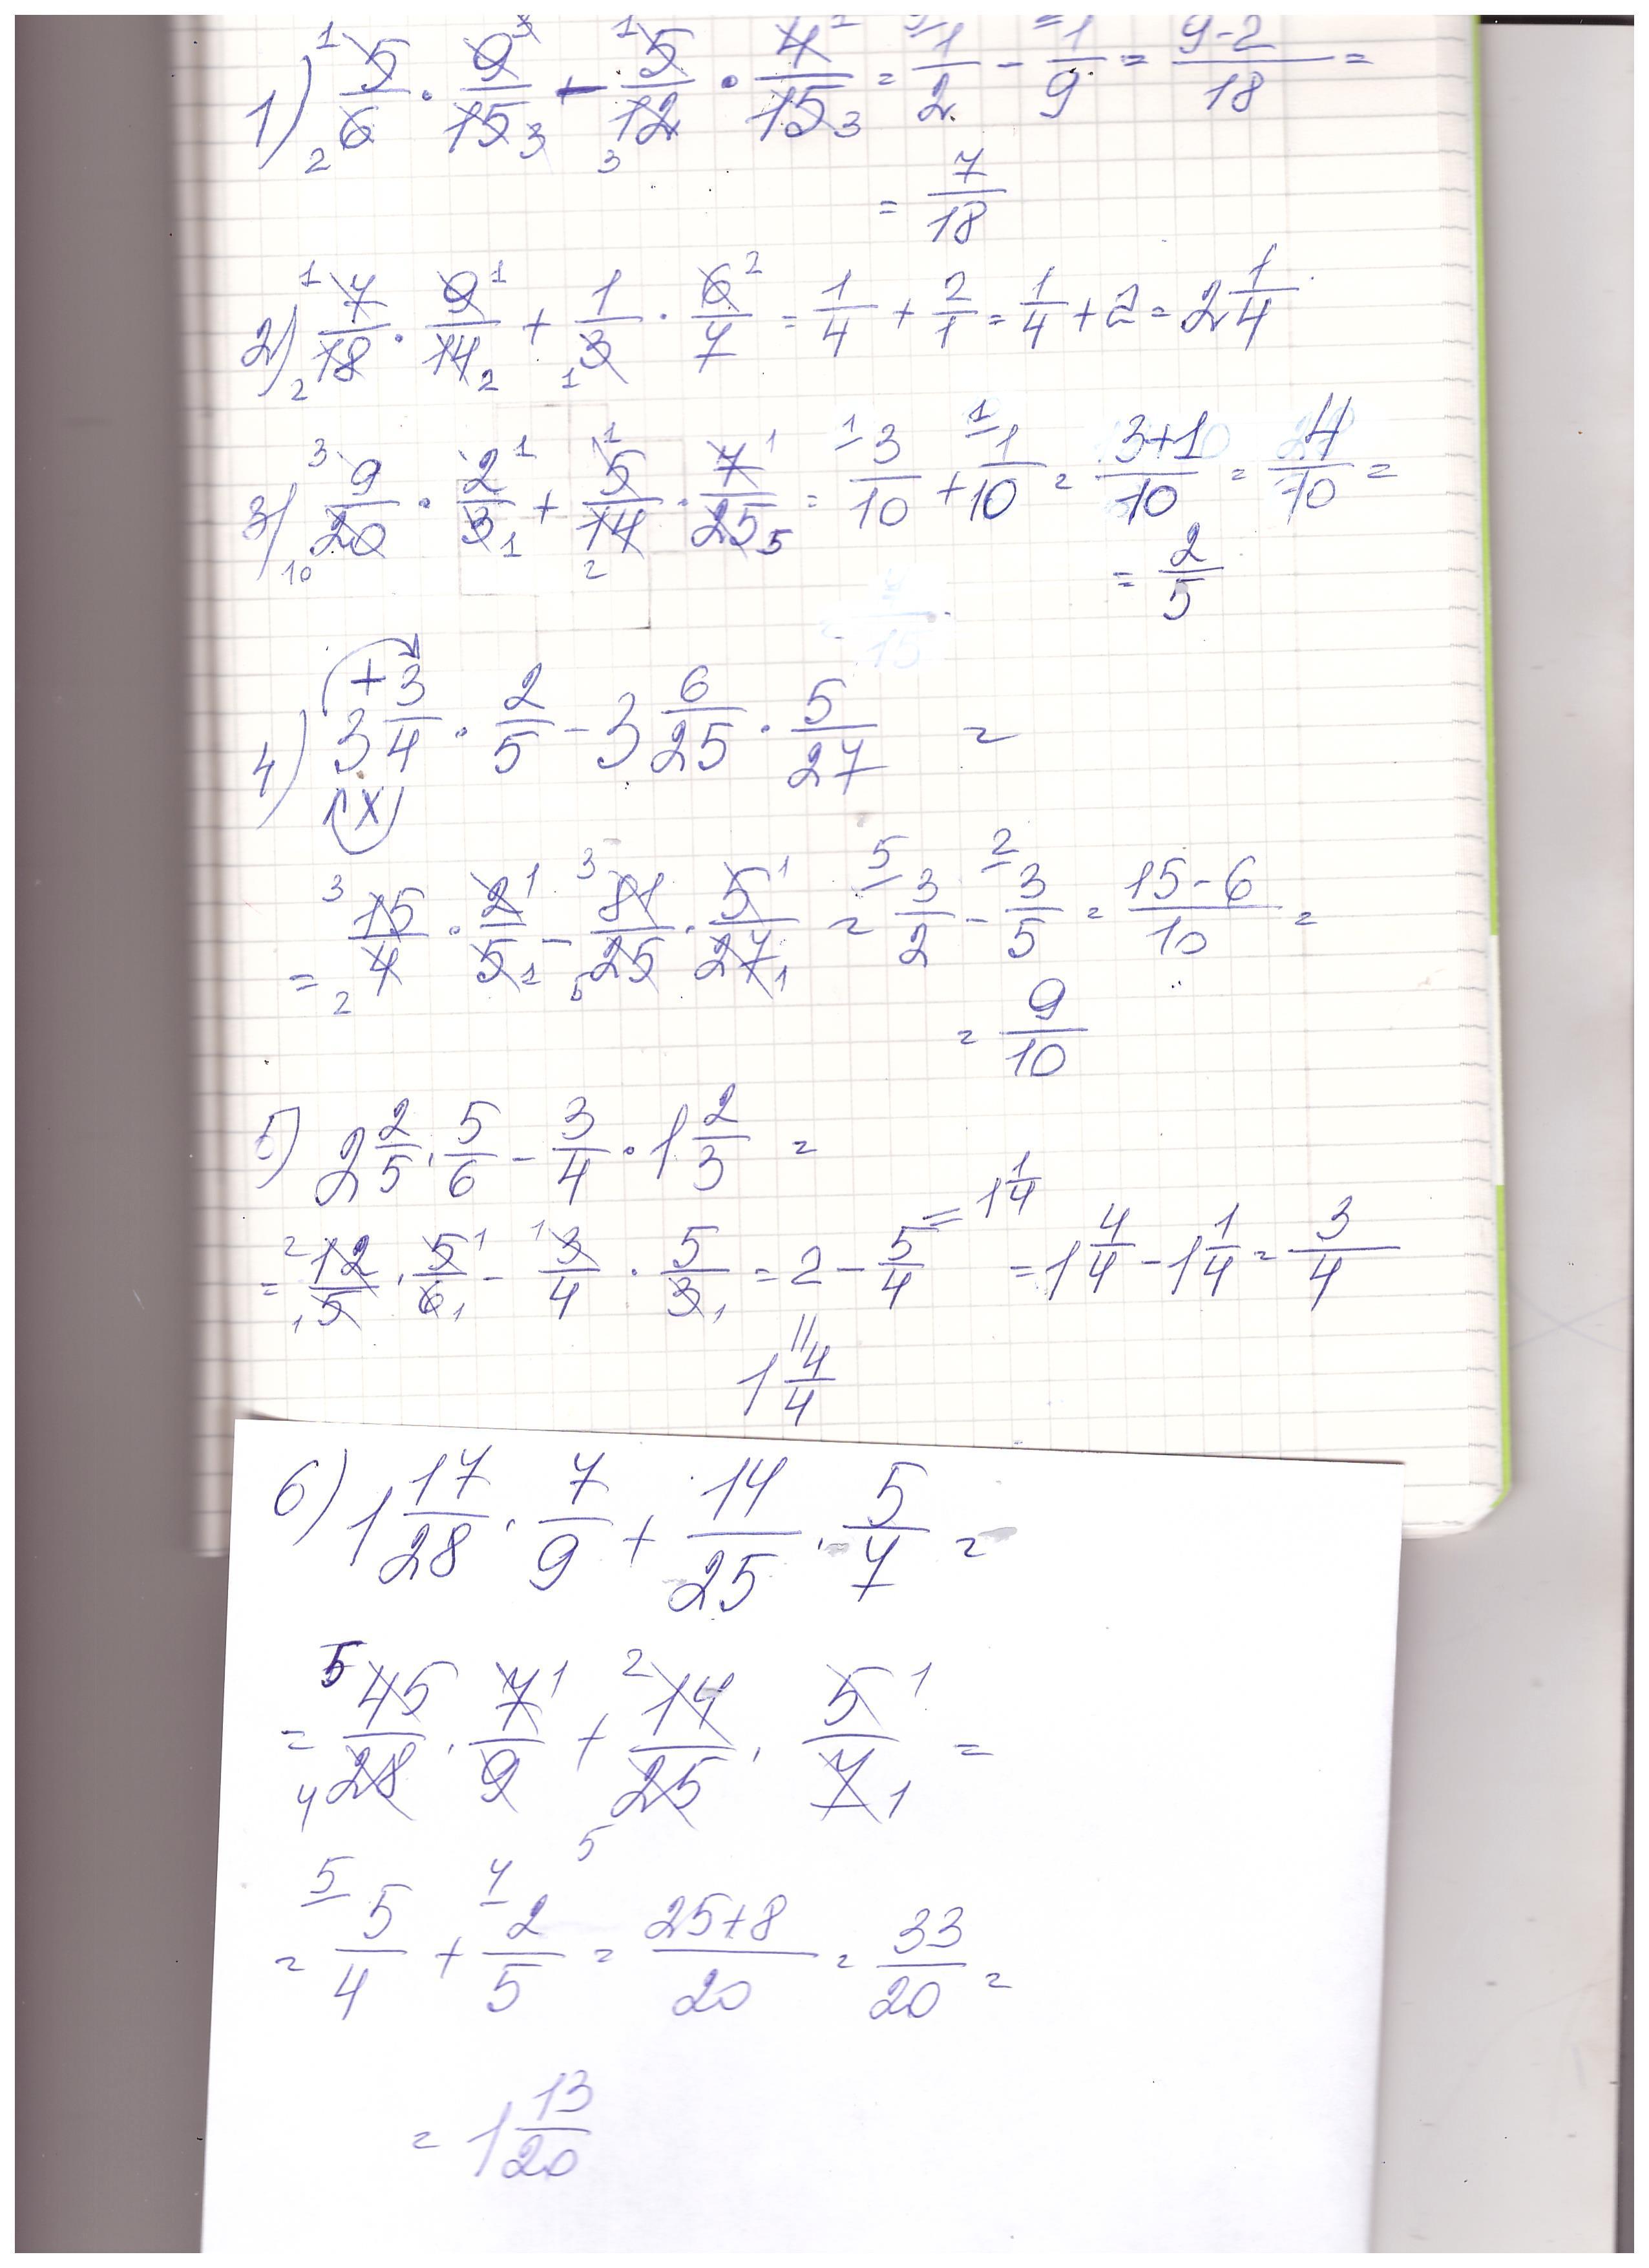 1) 5/6 · 9/15 - 5/12 · 4/15 = 1/2 - 1/9 = 9-2/18 =
= 7/18
2) 7/18 · 9/14 + 1/3 · 6/7 = 1/4 + 2/1 = 1/4 + 2 = 2 1/4
3) 9/20 · 2/3 + 5/14 · 7/25 = 3/10 + 1/10 = 3+1/10 = 4/10 =
= 2/5
4) 3 3/4 · 2/5 - 3 6/25 · 5/27 =
= 15/4 · 2/5 - 81/25 · 5/27 = 3/2 - 3/5 = 15-6/10 =
= 9/10
5) 2 2/5 · 5/6 - 3/4 · 1 2/3 =
= 12/5 · 5/6 - 3/4 · 5/3 = 2 - 5/4 = 1 1/4 = 1 4/4 - 1 1/4 = 3/4
1 4/4
6) 1 17/28 · 7/9 + 14/25 · 5/7 =
= 45/28 · 7/9 + 14/25 · 5/7 =
= 5/4 + 2/5 = 25+8/20 = 33/20 =
= 1 13/20